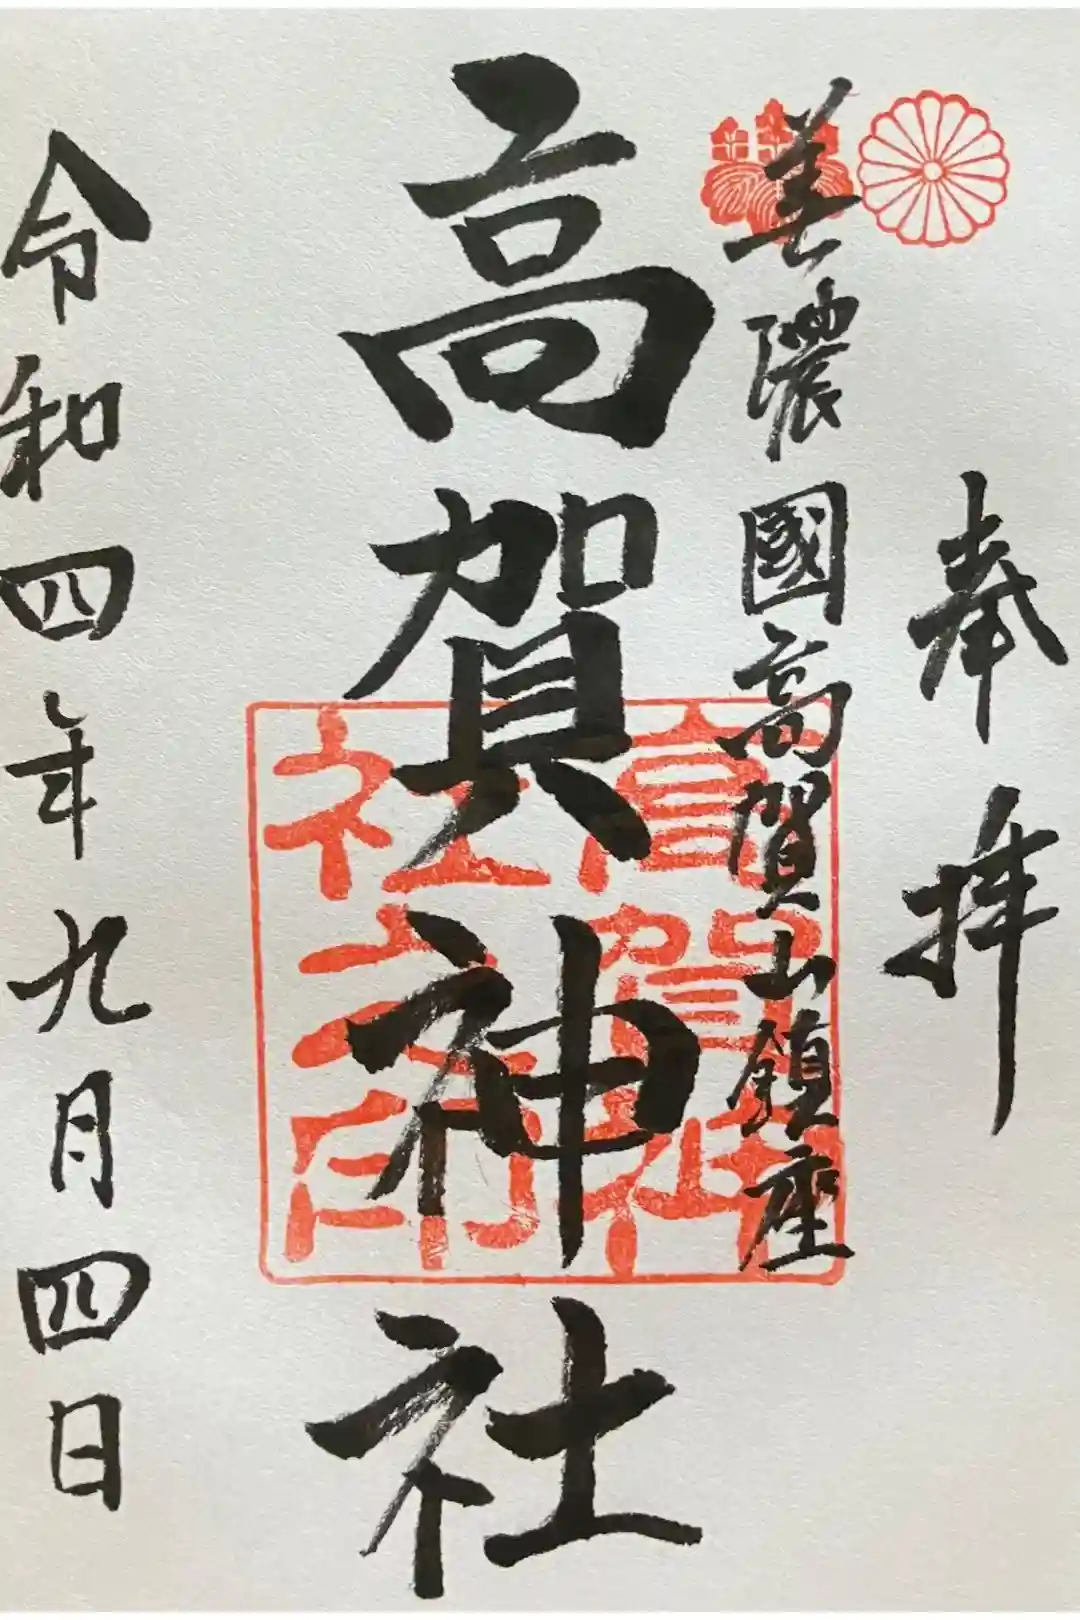 奉拝
美濃國高賀山鎮座
高賀神社
令和四年九月四日
高賀神社之印